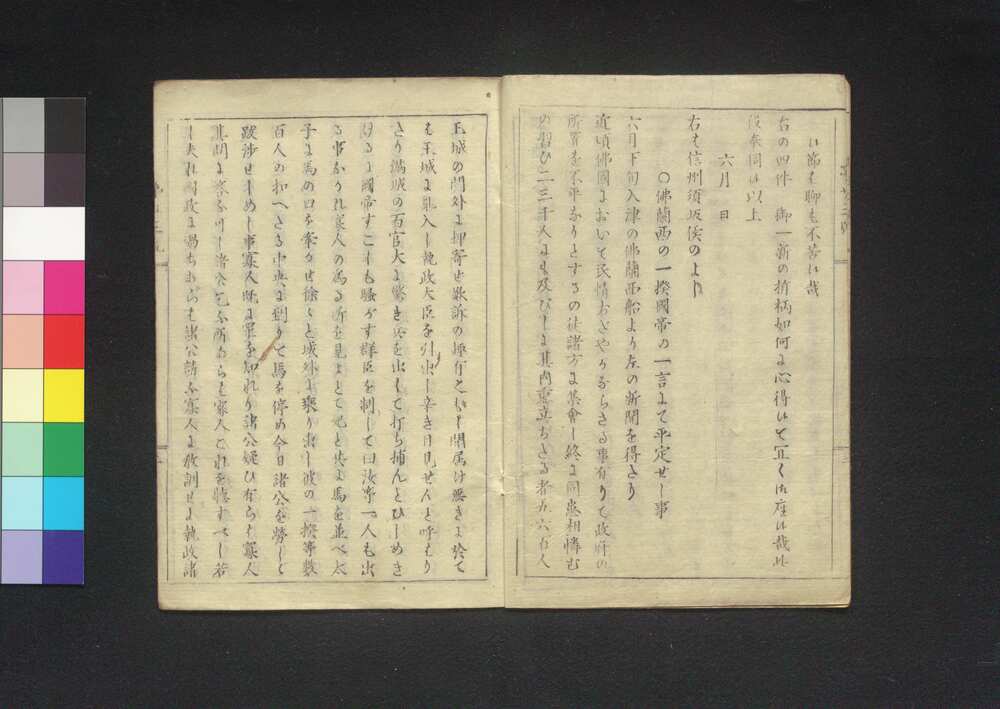 ハ節も聊も不苦ハ哉
右の四件　御一新の折柄如何よ心得ハて宜く御座ハ哉此
段奉伺ハ以上
六月　日
右も信州須坂侯のより
○佛蘭西の一揆國帝の一言よて平定せし事
六月下旬入津の佛蘭西船より左の新聞を得さり
近頃佛國よおいて民情おざやうならさる事有りて政府の
所置を不平なりとするの徒諸方よ集會し終よ同惡相憐む
の習ひ二三千人よも及びしよ其内重立ちさる者五六百人
王城の門外よ押寄せ歎訴の
も王城よ乱入し執政大臣を引出し辛き目見せんと呼もり
さり満城の百官大よ驚き兵を出して打ち捕んとひしめき
けるよ國帝すこしも騒がす群臣を制して曰汝等一人も出
る事なかれ寡人の為る所を見よとて兒と共よ馬を並べ太
子よ馬の口を牽かせ徐々と城外よ乗り出し彼の一揆等数
百人の扣へさる中央よ到りて馬を停め今日諸公を勞しく
跋渉せしめし事寡人既よ罪を知れり諸公疑ひ有らも寡人
其問よ答ふべし諸公乞ふ所あらも寡人これを聴すべし若
し夫れ國政よ過ちあらも諸公請ふ寡人よ教訓せよ執政諸